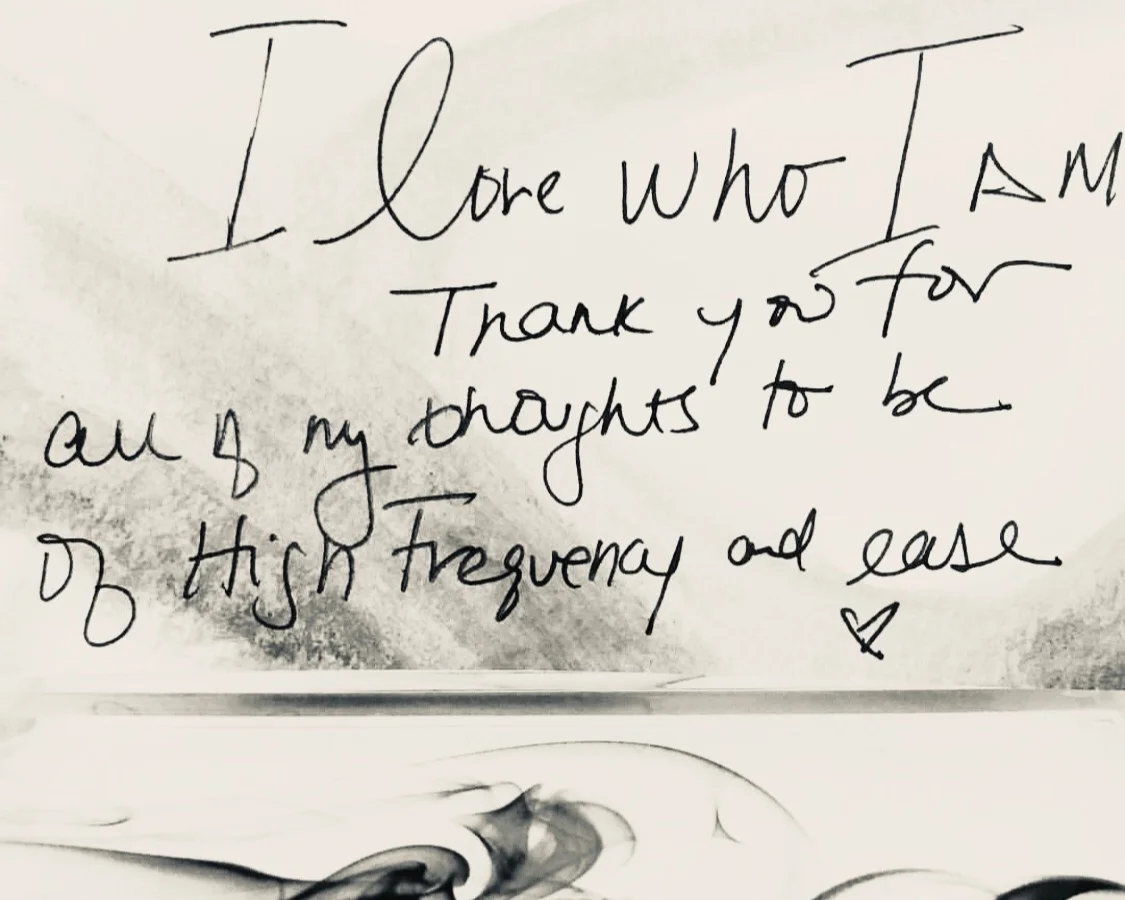 I love who I AM
Thank you for
all of my thoughts to be
of High Frequency and ease